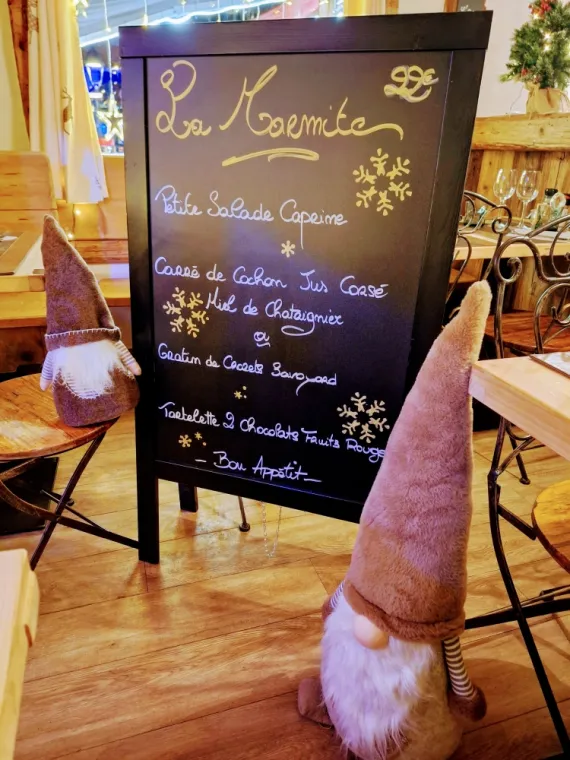 La Marmite
22€
Petite Salade Capeine
Carré de Cochon Jus Corsé
Miel de Chataignier
ou
Gratin de Crozets Savoyard
Tartelette 2 Chocolats Fruits Rouge
- Bon Appétit -